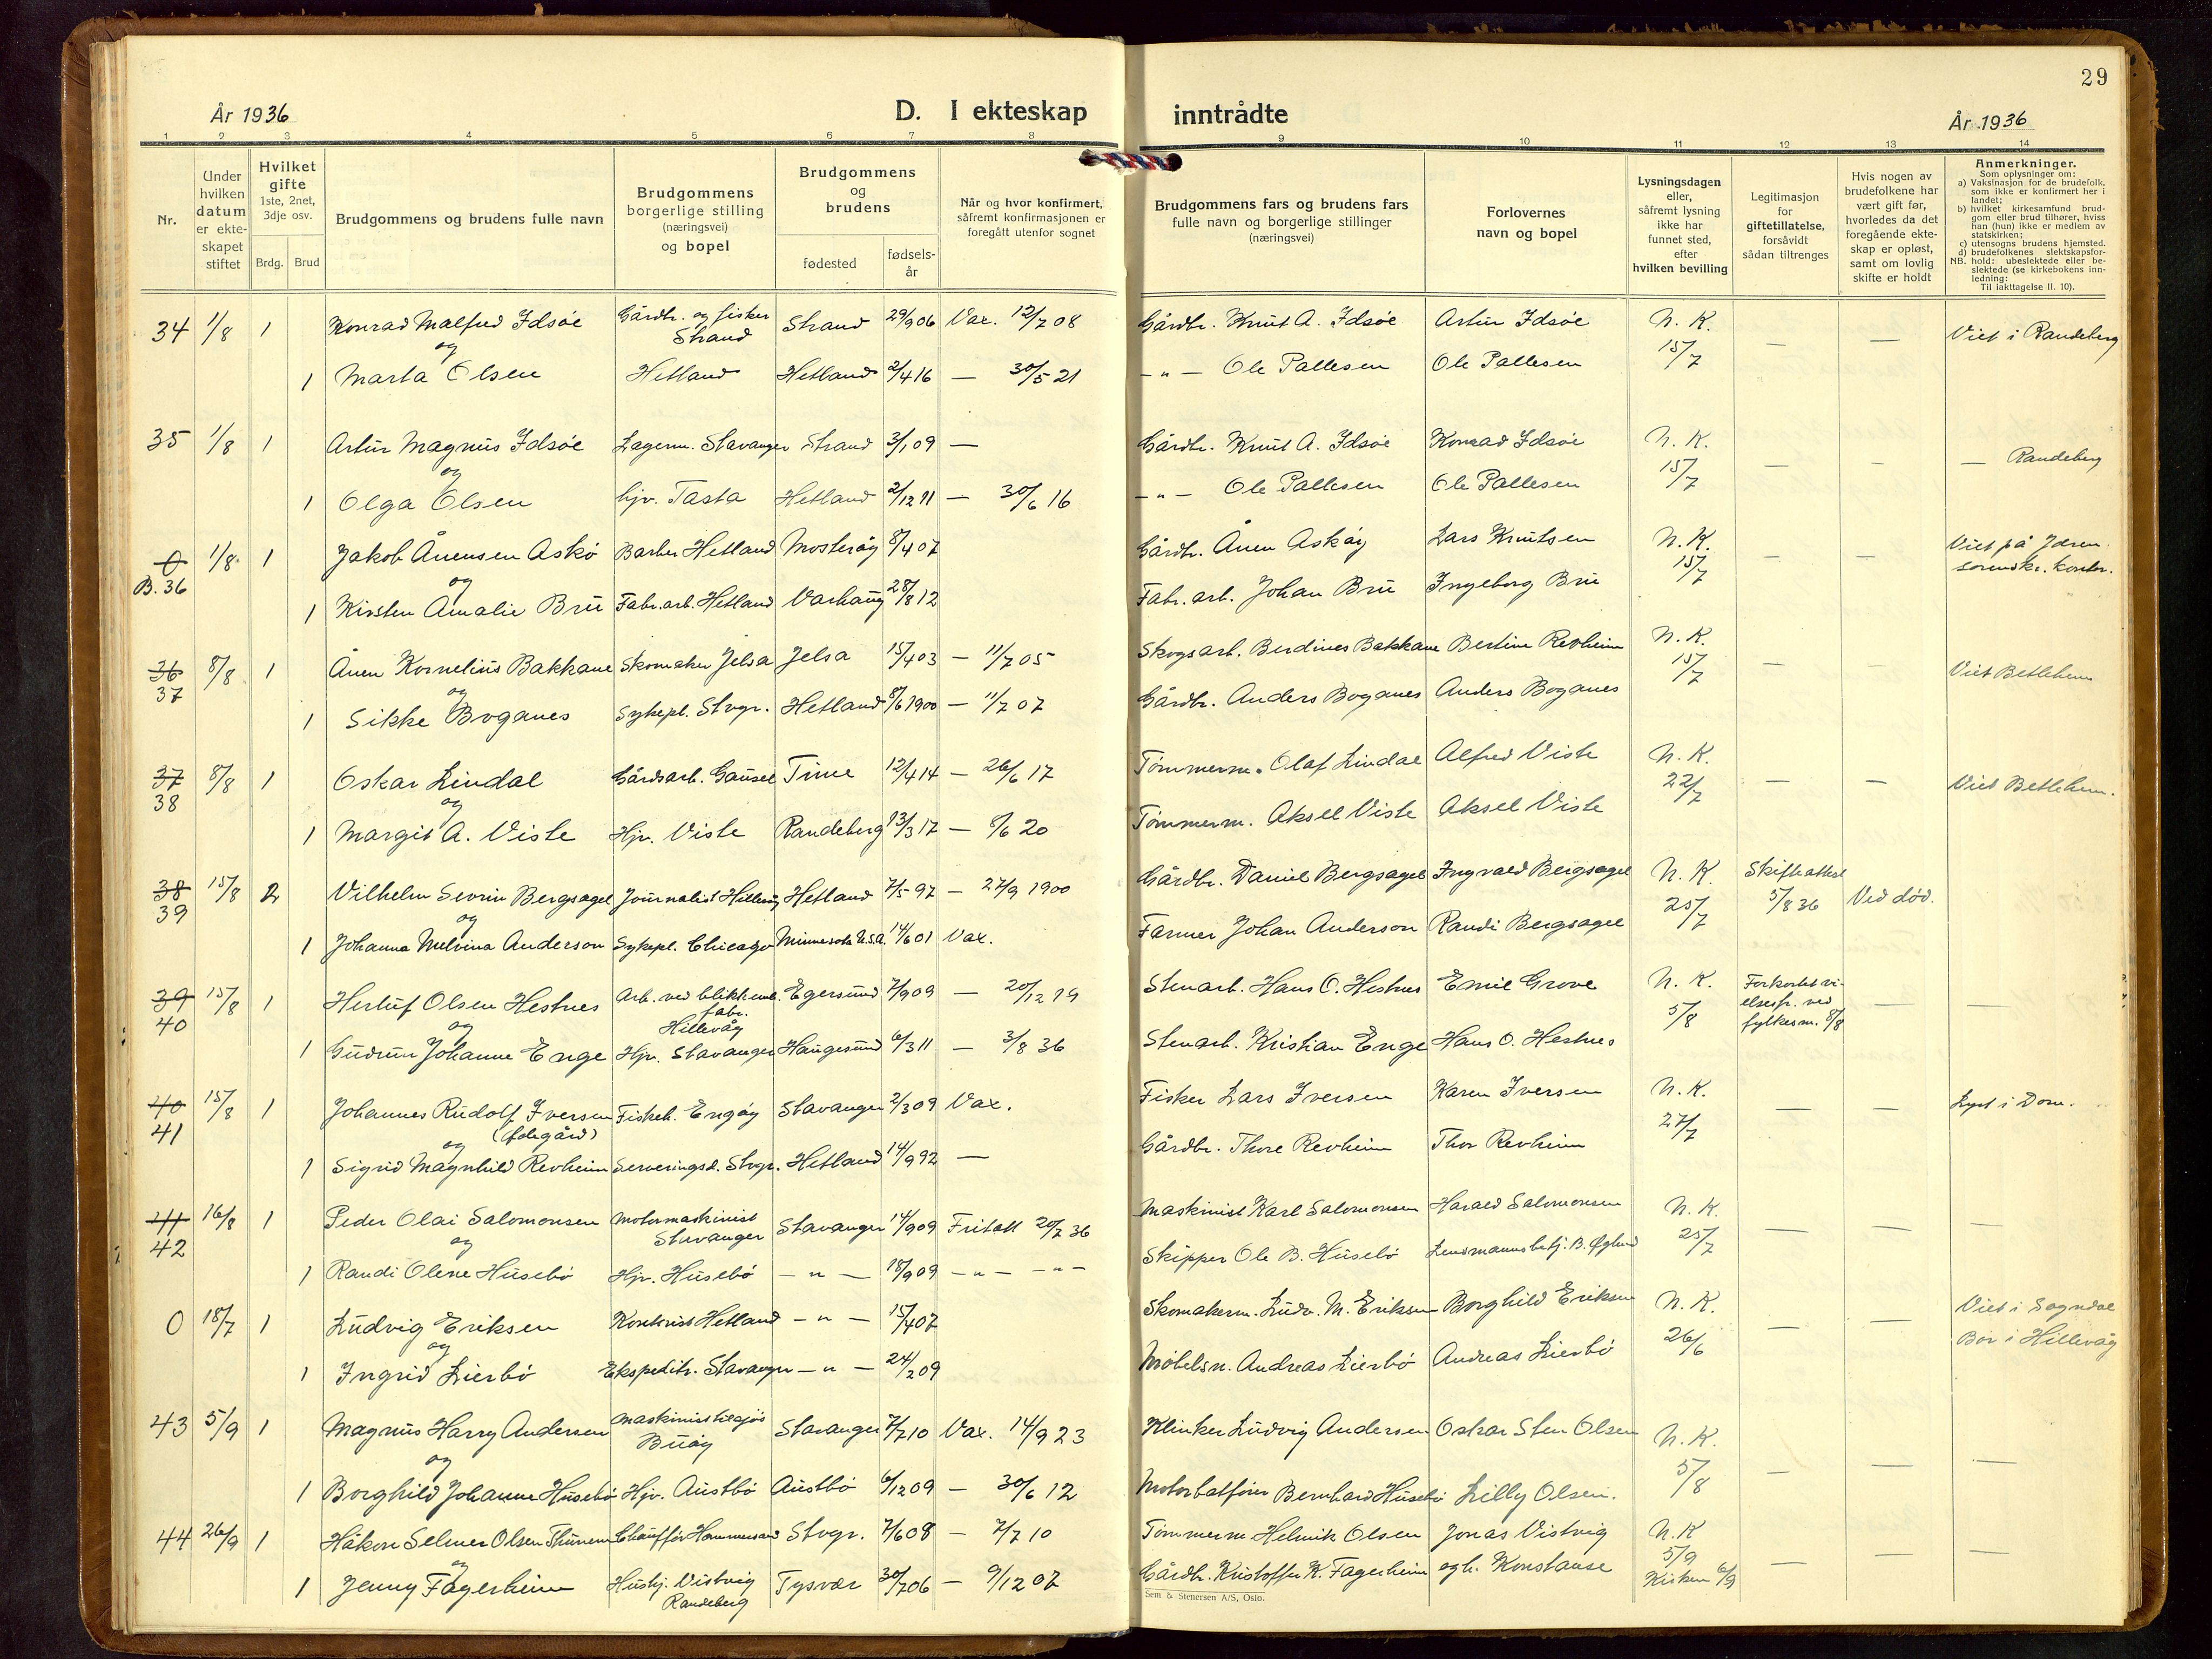 29
År 1936
D. I ekteskap inntrådte
År 1936
1 2 3 4 5 6 7 8 9 10 11 12 13 14
Nr.
Under hvilken datum er ekteskapet stiftet
Hvilket gifte 1ste, 2net, 3dje osv.
Brdg. Brud
Brudgommens og brudens fulle navn
Brudgommens borgerlige stilling (næringsvei) og bopel
Brudgommens og brudens
fødested
fødsels-år
Når og hvor konfirmert, såfremt konfirmasjonen er foregått utenfor sognet
Brudgommens fars og brudens fars fulle navn og borgerlige stillinger (næringsvei)
Forlovernes navn og bopel
Lysningsdagen eller, såfremt lysning ikke har funnet sted, efter hvilken bevilling
Legitimasjon for giftetillatelse, forsåvidt sådan tiltrenges
Hvis nogen av brudefolkene har vært gift før, hvorledes da det foregående ekteskap er opløst, samt om lovlig skifte er holdt
Anmerkninger.
Som oplysninger om:
a) Vaksinasjon for de brudefolk, som ikke er konfirmert her i landet;
b) hvilket kirkesamfund brudgom eller brud tilhører, hviss han (hun) ikke er medlem av statskirken;
c) utensogns brudens hjemsted.
d) brudefolkenes slektskapsforhold: ubeslektede eller beslektede (se kirkebokens innledning:
NB.
Til iakttagelse II. 10).
34 1/8 1 Konrad Malfred Idsøe Gårdbr. og fisker Strand Strand 29/9 06 Vax. 12/7 08 Gårdbr. Knut A. Idsøe Artur Idsøe N. K. 15/7 — — Viet i Randeberg
og
1 Marta Olsen Hetland Hetland 2/4 16 — 30/5 21 -"- Ole Pallesen Ole Pallesen
35 1/8 1 Artur Magnus Idsøe Lagerm. Stavanger Strand 3/1 09 — Gårdbr. Knut A. Idsøe Konrad Idsøe N. K. 15/7 — — — Randeberg
og
1 Olga Olsen hjv. Tasta Hetland 2/12 11 — 30/6 16 -"- Ole Pallesen Ole Pallesen
0 B. 36 1/8 1 Jakob Ånensen Askø Barber Hetland Mosterøy 8/4 07 Gårdbr. Ånen Askøy Lars Knutsen N. K. 15/7 — — Viet på Jæren sorenskr. kontor.
og
1 Kirsten Amalie Bru Fabr. arb. Hetland Varhaug 28/8 12 Fabr. arb. Johan Bru Ingeborg Bru
36 37 8/8 1 Ånen Kornelius Bakkane Skomaker Jelsa Jelsa 15/4 03 — 11/7 05 Skogsarb. Berdines Bakkane Bertine Revheim N. K. 15/7 — — Viet Betlehem
og
1 Sikke Boganes Sykepl. Stvgr. Hetland 8/6 1900 — 11/7 07 Gårdbr. Anders Boganes Anders Boganes
37 38 8/8 1 Oskar Lindal Gårdsarb. Gausel Time 12/4 14 — 26/6 17 Tømmerm. Olaf Lindal Alfred Viste N. K. 22/7 — — Viet Betlehem.
og
1 Margit A. Viste Hjv. Viste Randeberg 13/3 17 — 8/6 20 Tømmerm. Aksel Viste Aksel Viste
38 39 15/8 2 Vilhelm Severin Bergsagel Journalist Hillevåg Hetland 7/5 97 — 27/9 1900 Gårdbr. Daniel Bergsagel Ingvald Bergsagel N. K. 25/7 Skifteattest 5/8 36 Ved død.
og
1 Johanna Melvina Anderson Sykepl. Chicago Minnesota U.S.A. 14/6 01 Vax. Farmer Johan Anderson Randi Bergsagel
39 40 15/8 1 Herluf Olsen Hestnes Arb. ved blikkemb. fabr. Hillevåg Egersund 7/9 09 — 20/12 19 Stenarb. Hans O. Hestnes Emil Grove N. K. 5/8 Forkortet vielsesfr. ved fylkesm. 8/8 — —
og
1 Gudrun Johanne Enge Hjv. Stavanger Haugesund 6/3 11 — 3/8 36 Stenarb. Kristian Enge Hans O. Hestnes
40 41 15/8 1 Johannes Rudolf Iversen (Ødegård) Fiskeh. Engøy Stavanger 2/3 09 Vax. Fisker Lars Iversen Karen Iversen N. K. 27/7 — — Lyst i Dom.
og
1 Sigrid Magnhild Revheim Serveringsd. Stvgr. Hetland 14/9 92 — Gårdbr. Thore Revheim Thor Revheim
41 42 16/8 1 Peder Olai Salomonsen Motormaskinist Stavanger Stavanger 14/9 09 Fritatt 20/7 36 Maskinist Karl Salomonsen Harald Salomonsen N. K. 25/7 — — —
og
1 Randi Olene Husebø Hjv. Husebø -"- 18/9 09 -"- -"- Skipper Ole B. Husebø Lensmannsbetj. B. Øglend
0 18/7 1 Ludvig Eriksen Kontorist Hetland -"- 15/4 07 Skomakerm. Ludv. M. Eriksen Borghild Eriksen N. K. 26/6 — — Viet i Sogndal Bor i Hillevåg
og
1 Ingrid Lierbø Ekspeditr. Stavanger -"- 24/2 09 Møbelsn. Andreas Lierbø Andreas Lierbø
43 5/9 1 Magnus Harry Andersen Maskinist tilsjøs Buøy Stavanger 7/7 10 Vax. 14/9 23 Klinker Ludvig Andersen Oskar Sten Olsen N. K. 5/8 — — —
og
1 Borghild Johanne Husebø Hjv. Austbø Austbø 6/12 09 — 30/6 12 Motorbåtfører Bernhard Husebø Lilly Olsen.
44 26/9 1 Håkon Selmer Olsen Thunem Chauffør Hammersand Stvgr. 7/6 08 — 7/7 10 Tømmerm. Helmik Olsen Jonas Vistvig N. K 5/9 Kirken 6/9 — — —
og
1 Jenny Fagerheim Hushj. Vistvig Randeberg Tysvær 30/7 06 — 9/12 07 Gårdbr. Kristoffer K. Fagerheim og h. Konstanse
Sem & Stenersen A/S, Oslo.